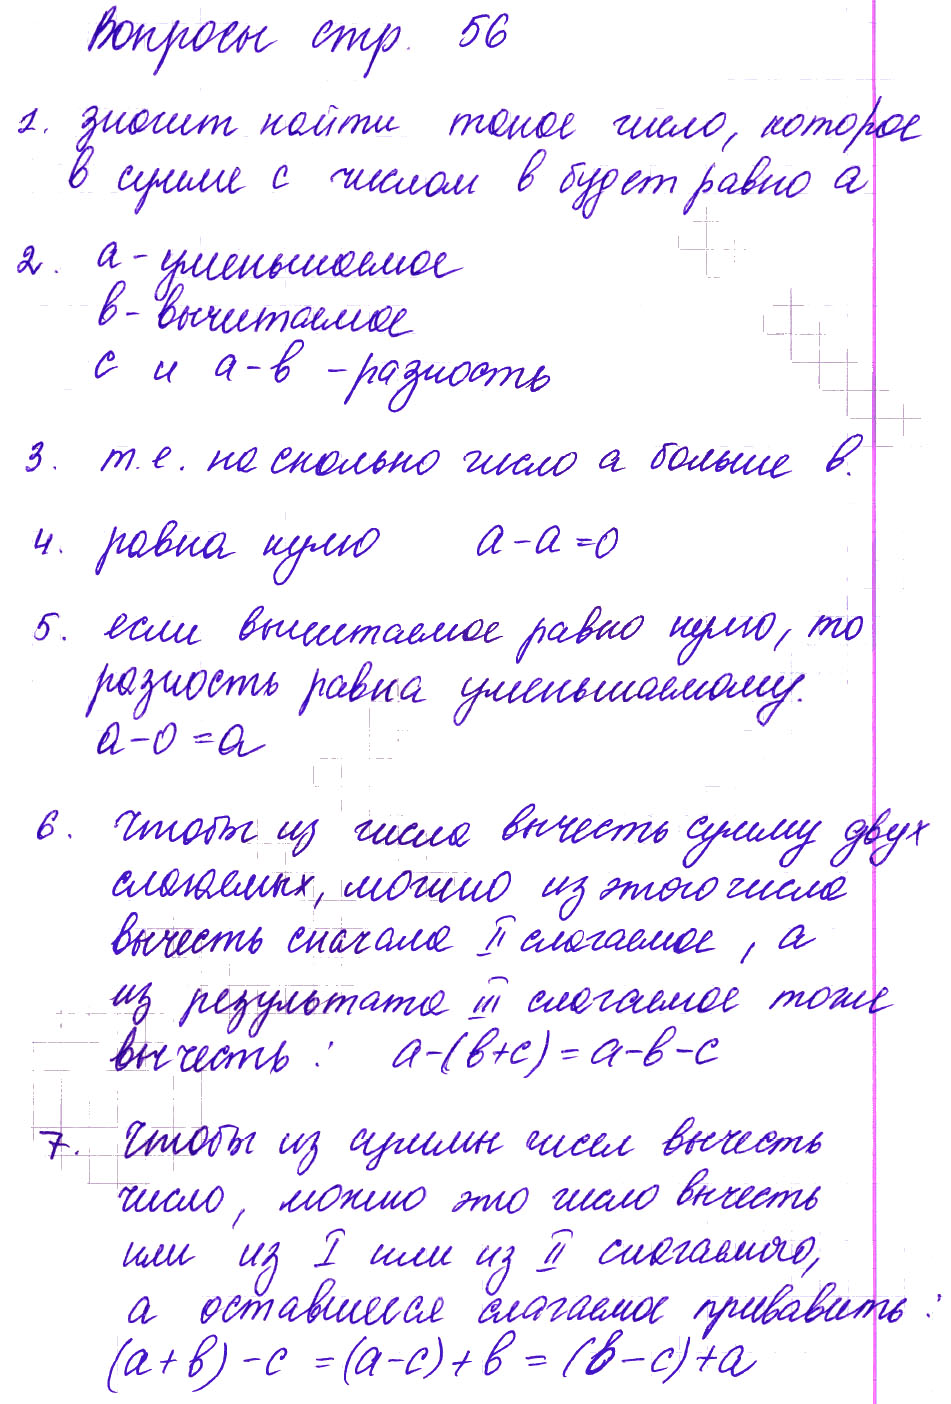 Вопросы стр. 56
1. значит найти такое число, которое
в сумме с числом в будет равно а
2. а - уменьшаемое
в - вычитаемое
с и а-в - разность
3. т.е. на сколько число а больше в.
4. равна нулю а-а=0
5. если вычитаемое равно нулю, то
разность равна уменьшаемому.
а-0=а
6. Чтобы из числа вычесть сумму двух
слагаемых, можно из этого числа
вычесть сначала II слагаемое, а
из результата III слагаемое тоже
вычесть: а-(в+с)=а-в-с
7. Чтобы из суммы чисел вычесть
число, можно это число вычесть
или из I или из II слагаемого,
а оставшееся слагаемое прибавить:
(а+в)-с=(а-с)+в=(в-с)+а